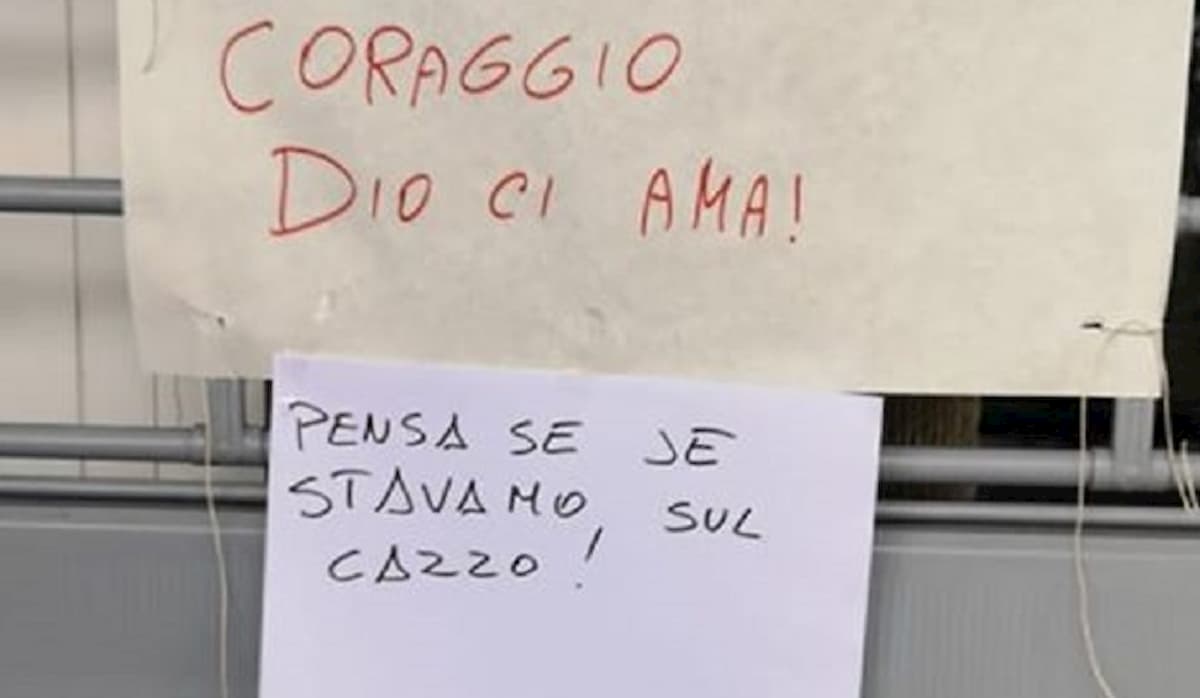 CORAGGIO
DIO CI AMA!
PENSA SE JE
STAVAMO, SUL
CAZZO!